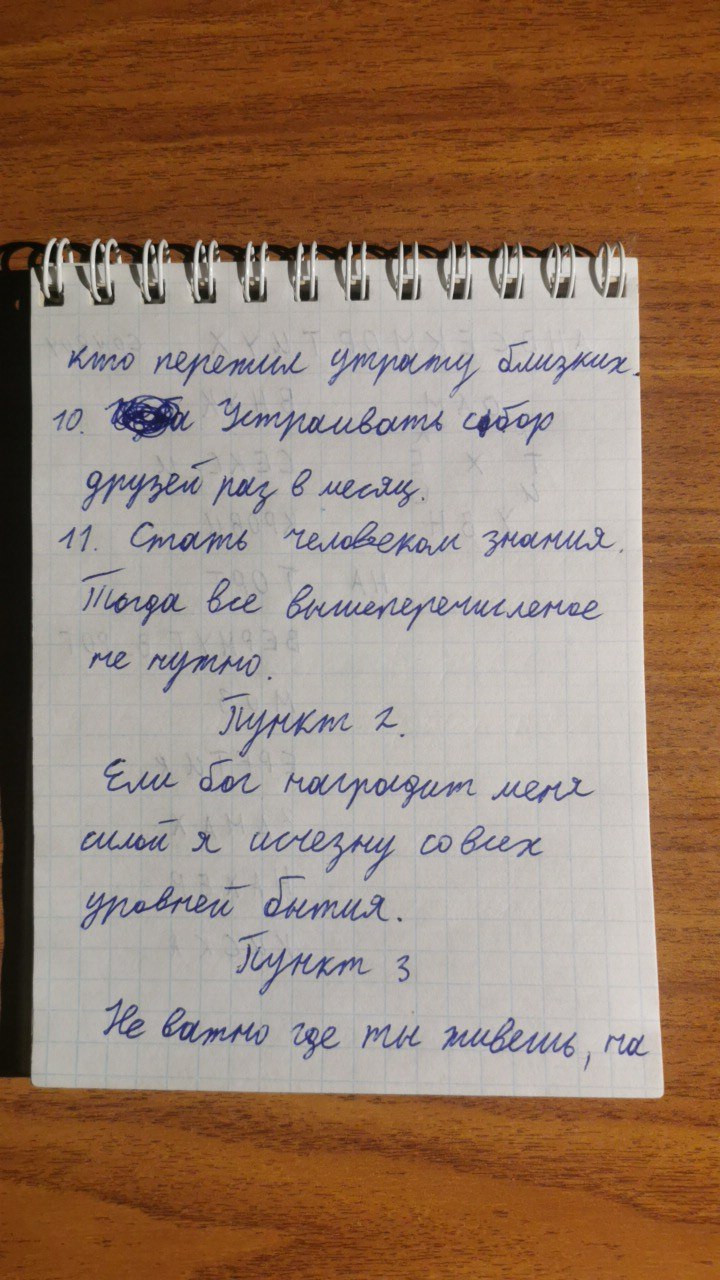 кто пережил утрату близких.
10. Устраивать сбор
друзей раз в месяц.
11. Стать человеком знания.
Тогда все вышеперечисленое
не нужно.
Пункт 2.
Если бог наградит меня
силой я исчезну со всех
уровней бытия.
Пункт 3
Не важно где ты живешь, на